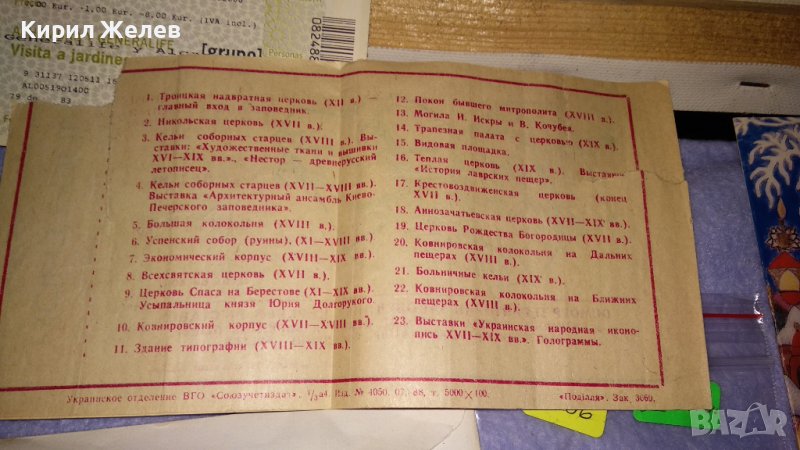 Кирил Желев
0,00 Eur. +1,00 Eur. -8,00 Eur. (IVA incl.)
GENERALIFE
[grupo]
Visita a jardines
Personas
082488
9 31137 120611
AL0051901400
83
1. Троицкая надвратная церковь (XII в.) —
главный вход в заповедник.
2. Никольская церковь (XVII в.).
3. Кельи соборных старцев (XVIII в.). Вы-
ставки: «Художественные ткани и вышивки
XVI—XIX вв.», «Нестор — древнерусский
летописец».
4. Кельи соборных старцев (XVII—XVIII вв.).
Выставка «Архитектурный ансамбль Киево-
Печерского заповедника».
5. Большая колокольня (XVIII в.).
6. Успенский собор (руины), (XI—XVIII вв.)
7. Экономический корпус (XVIII—XIX вв.).
8. Всехсвятская церковь (XVII в.).
9. Церковь Спаса на Берестове (XI—XIX вв.).
Усыпальница князя Юрия Долгорукого.
10. Ковнировский корпус (XVII—XVIII вв.).
11. Здание типографии (XVIII—XIX вв.).
12. Покои бывшего митрополита (XVIII в.).
13. Могила И. Искры и В. Кочубея.
14. Трапезная палата с церковью (XIX в.).
15. Видовая площадка.
16. Теплая церковь (XIX в.). Выставка
«История лаврских пещер».
17. Крестовоздвиженская церковь (конец
XVII в.).
18. Аннозачатьевская церковь (XVII—XIX вв.).
19. Церковь Рождества Богородицы (XVII в.).
20. Ковнировская колокольня на Дальних
пещерах (XVIII в.).
21. Больничные кельи (XIX в.).
22. Ковнировская колокольня на Ближних
пещерах (XVIII в.).
23. Выставки «Украинская народная иконо-
пись XVII—XIX вв.». Голограммы.
Украинское отделение ВГО «Союзучетиздат». 1/3а4. Изд. № 4050. 07. 88, т. 5000×100.
«Поділля». Зак. 3060.
BAZAR